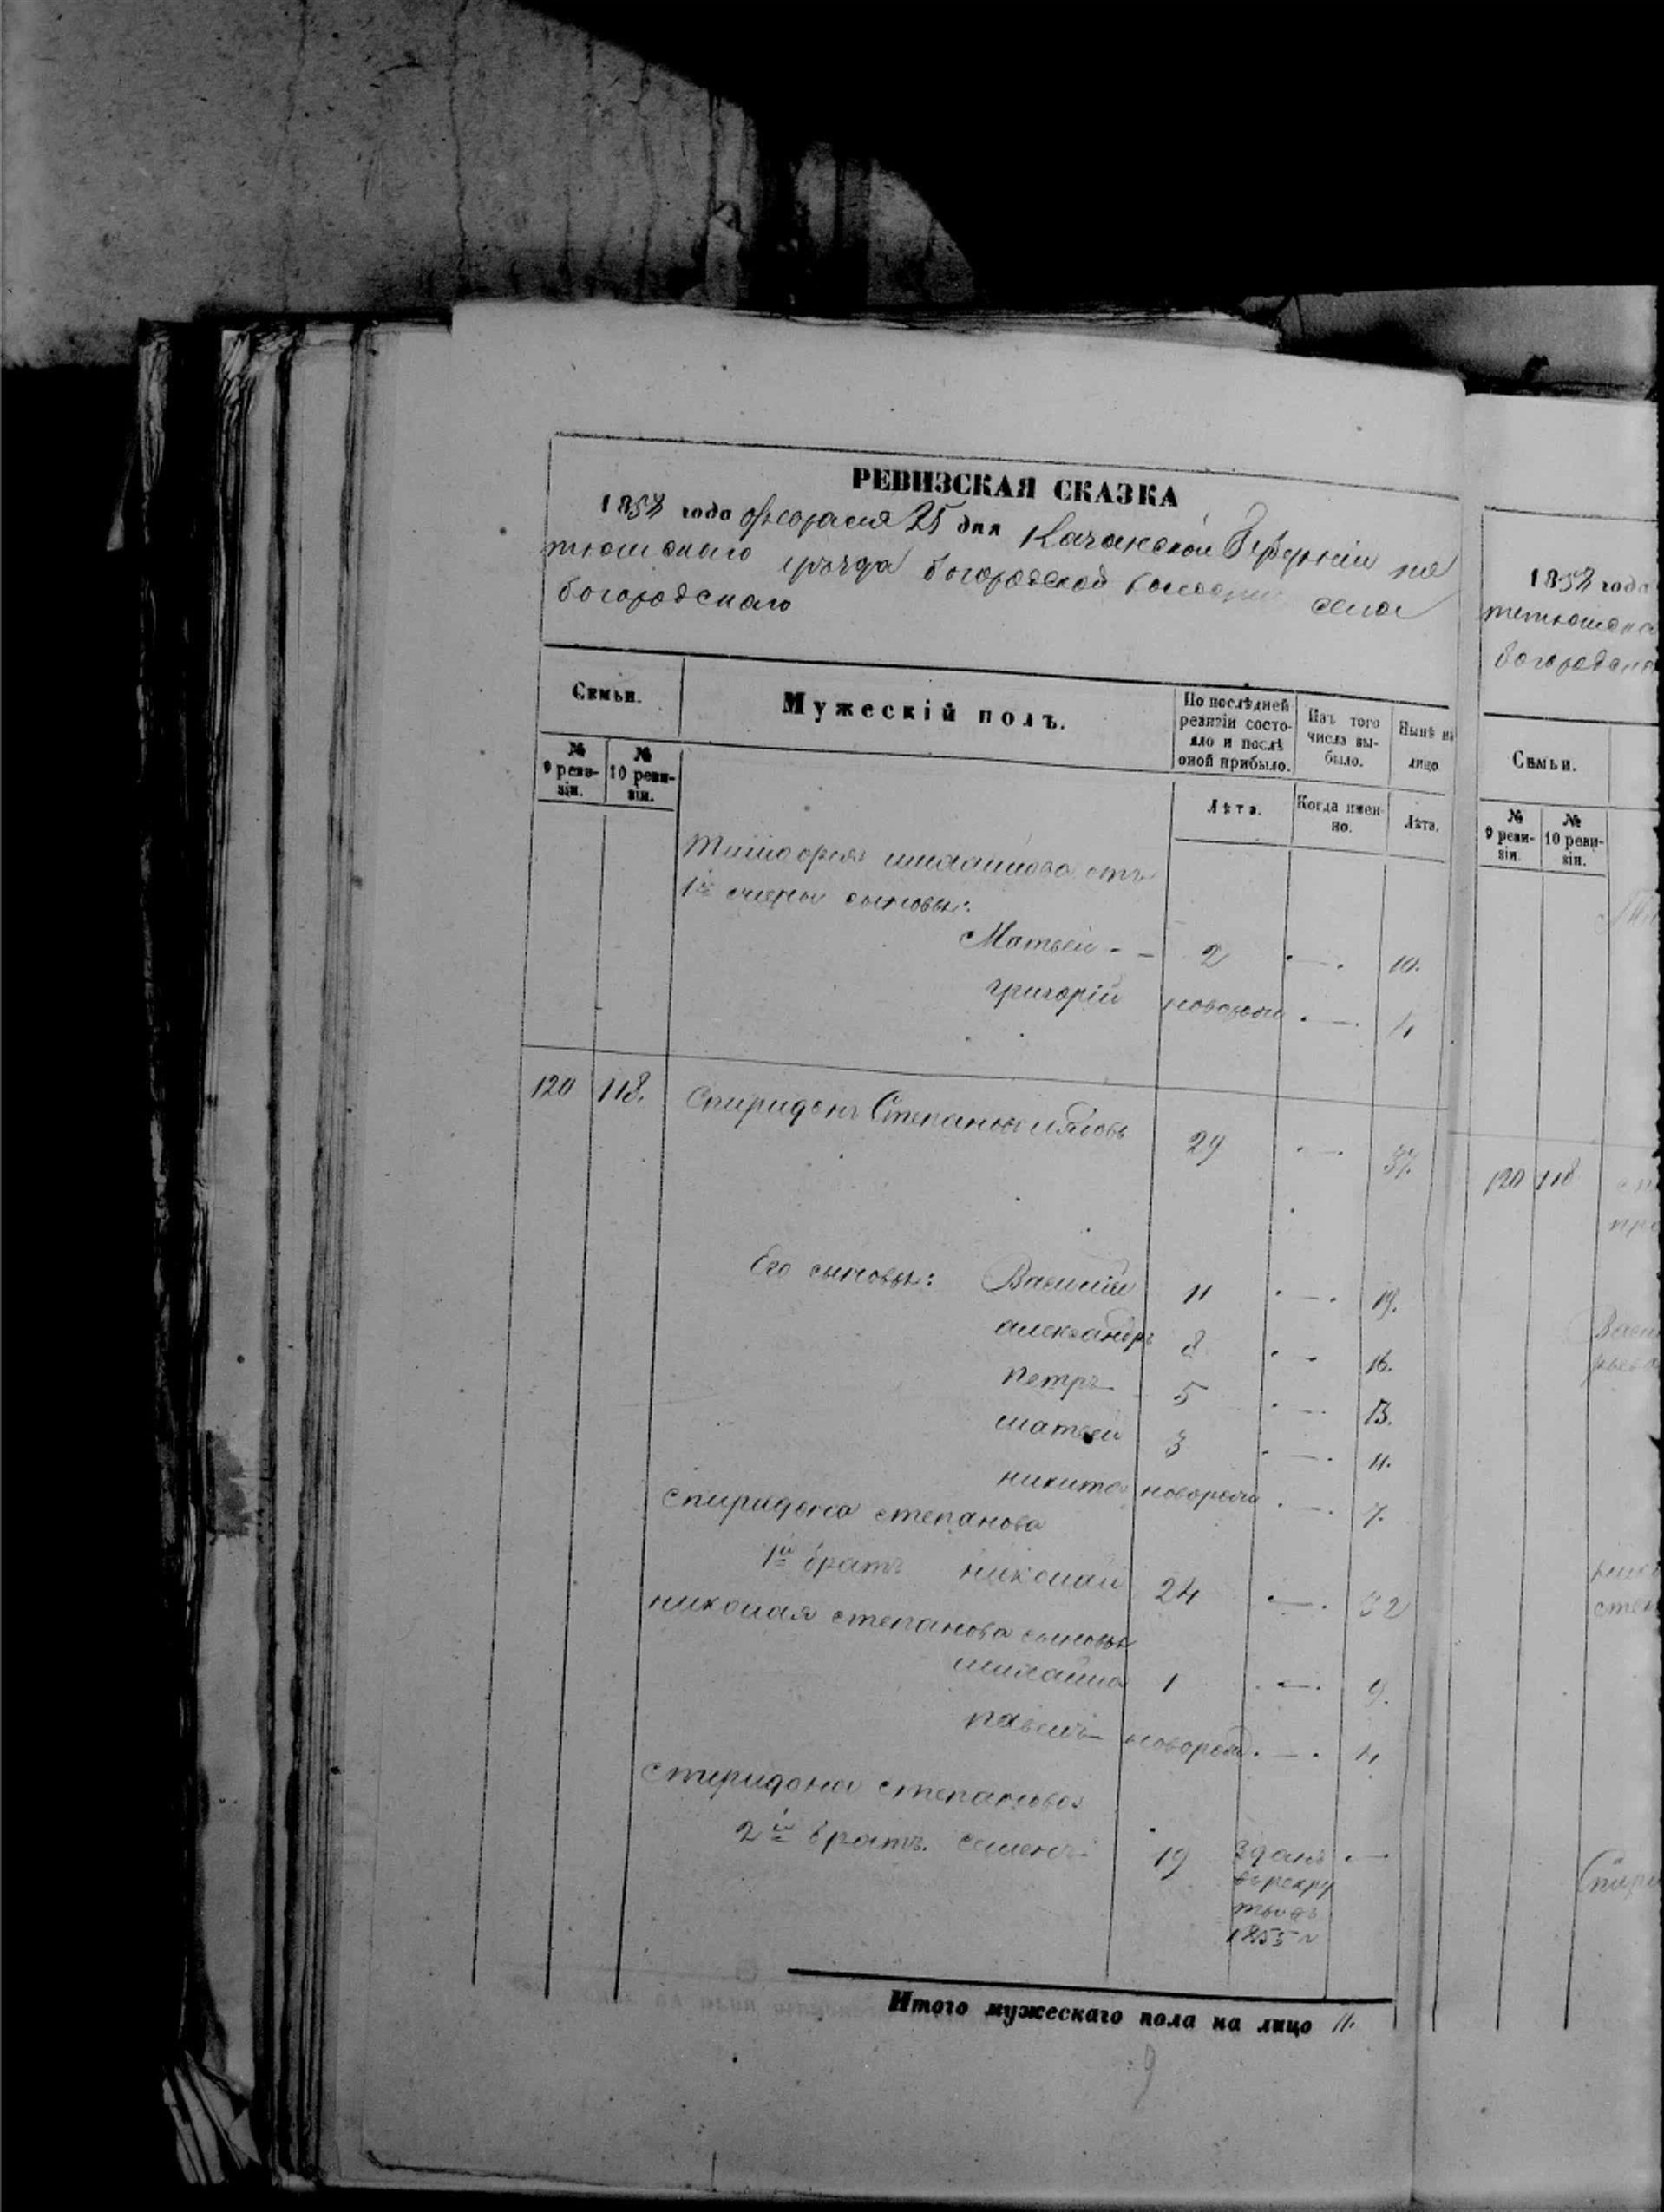 РЕВИЗСКАЯ СКАЗКА
1858 года февраля 25 дня Казанской Губерніи те
тюшскаго уѣзда богородской волости села
богородскаго
Семьи.
Мужескій полъ.
По послѣдней ревизіи состояло и послѣ оной прибыло.
Изъ того числа выбыло.
Нынѣ на лицо
№ 9 ревизіи.
№ 10 ревизіи.
Лѣта.
Когда именно.
Лѣта.
Тимофея михайлова отъ
1й жены сыновья:
Матвей - - 2 10.
григорій новорожд 4
120 118. Спиридонъ Степановъ 29 37.
Его сыновья: Василій 11 19.
александръ 8 16.
петръ 5 13.
матвей 3 11.
никита новорожд 7.
спиридона степанова
1й братъ николай 24 32
николая степанова сыновья
михайла 1 9.
павелъ новорожд. 4
спиридона степанова
2й братъ. семенъ 19 зданъ
въ рекру
ты въ
1855 г
Итого мужескаго пола на лицо 11.
9
1858 года
тетюшска
богородска
Семьи.
№ 9 ревизіи.
№ 10 ревизіи.
120 118
Васи
нико
степ
Спири